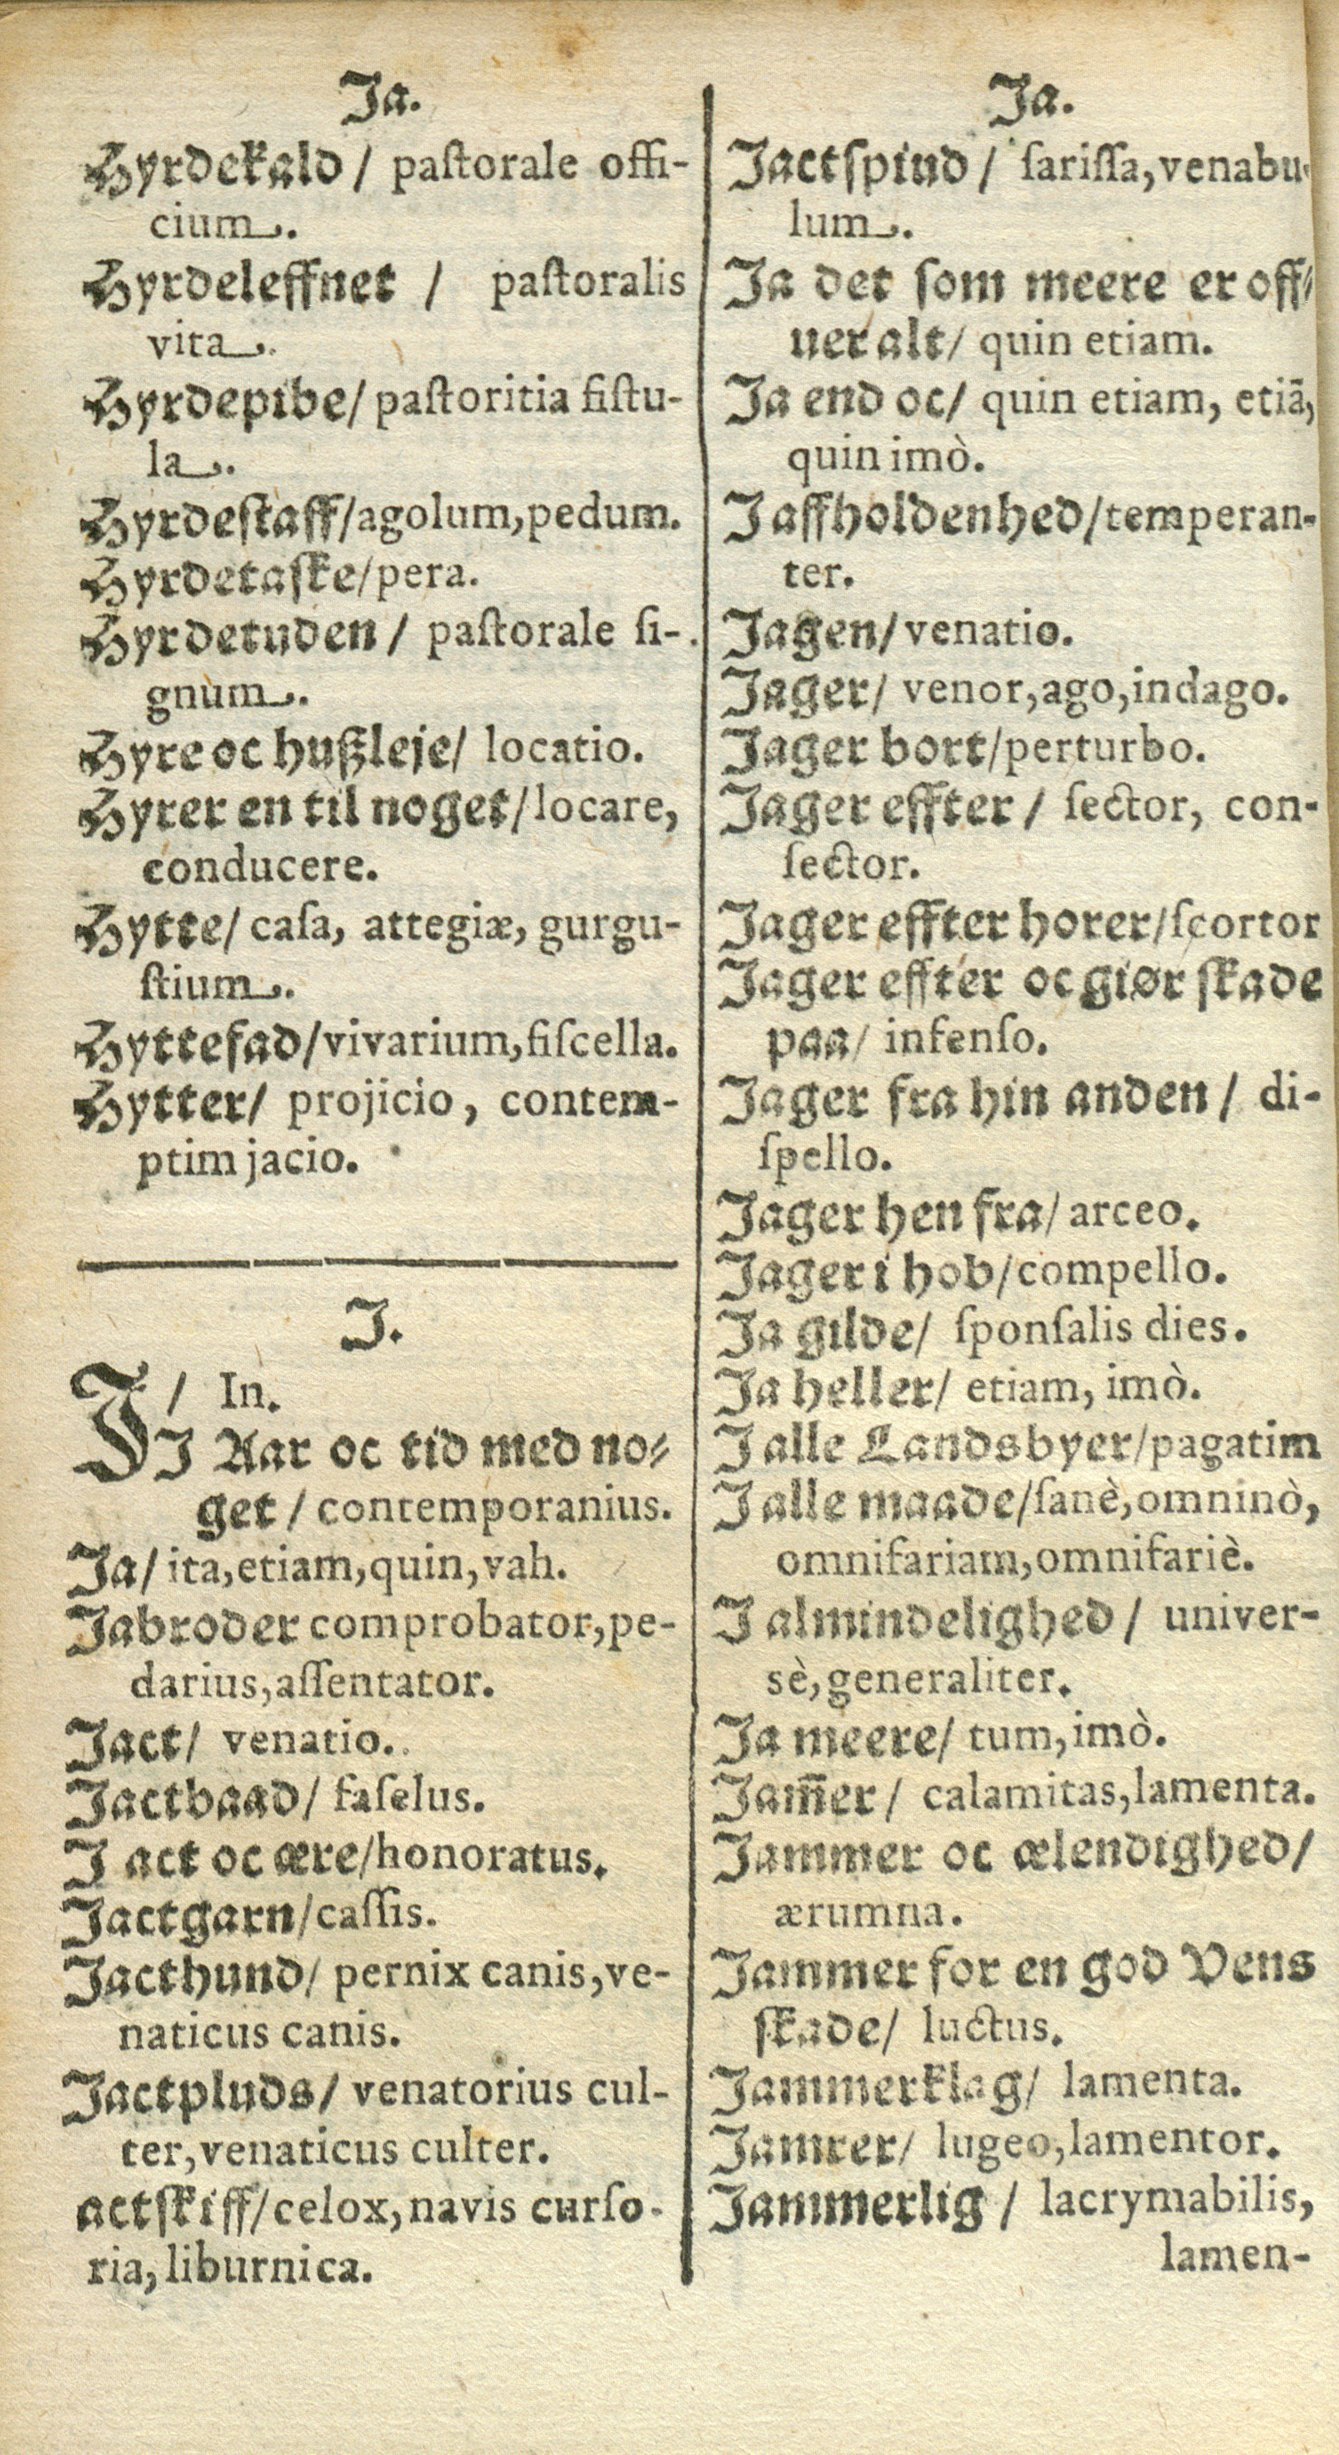 Ja.
Hyrdekald / paſtorale offi-
cium.
Hyrdeleffnet / paſtoralis
vita.
Hyrdepibe/ paſtoritia fiſtu-
la.
Hyrdeſtaff/agolum,pedum.
Hyrdetaſke/pera.
Hyrdetuden / paſtorale ſi-
gnum.
Hyre oc hußleje/ locatio.
Hyrer en til noget/locare,
conducere.
Hytte/ caſa, attegiæ, gurgu-
ſtium.
Hyttefad/vivarium,fiſcella.
Hytter/ projicio, contem-
ptim jacio.
J.
J/ In.
J Aar oc tid med no-
get / contemporanius.
Ja/ ita,etiam,quin,vah.
Jabroder comprobator,pe-
darius,aſſentator.
Jact/ venatio.
Jactbaad/ faſelus.
J act oc ære/honoratus.
Jactgarn/caſſis.
Jacthund/ pernix canis,ve-
naticus canis.
Jactpluds/ venatorius cul-
ter,venaticus culter.
actſkiff/celox,navis curſo-
ria,liburnica.
Ja.
Jactſpiud/ ſariſſa,venabu-
lum.
Ja det ſom meere er off-
uer alt/ quin etiam.
Ja end oc/ quin etiam, etiā,
quin imò.
J affholdenhed/temperan-
ter.
Jagen/venatio.
Jager/ venor,ago,indago.
Jager bort/perturbo.
Jager effter / ſector, con-
ſector.
Jager effter horer/ſcortor
Jager effter oc giør ſkade
paa/ infenſo.
Jager fra hin anden / di-
ſpello.
Jager hen fra/ arceo.
Jager i hob/compello.
Ja gilde/ ſponſalis dies.
Ja heller/ etiam, imò.
J alle Landsbyer/pagatim
J alle maade/ſanè,omninò,
omnifariam,omnifariè.
J almindelighed / univer-
sè,generaliter.
Ja meere/ tum,imò.
Jam̄er/ calamitas,lamenta.
Jammer oc ælendighed/
ærumna.
Jammer for en god Vens
ſkade/ luctus.
Jammerklag/ lamenta.
Jamrer/ lugeo,lamentor.
Jammerlig / lacrymabilis,
lamen-